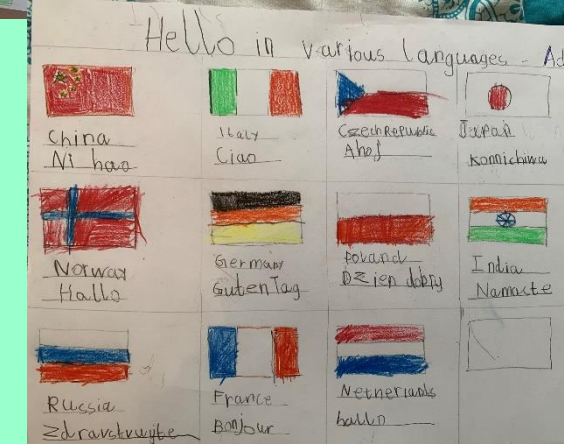 Hello in various languages - Ad
China
Ni hao
Italy
Ciao
Czech Republic
Ahoj
Japan
Konnichiwa
Norway
Hallo
Germany
Guten Tag
Poland
Dzien dobry
India
Namaste
Russia
Zdravstvuyte
France
Bonjour
Netherlands
hallo